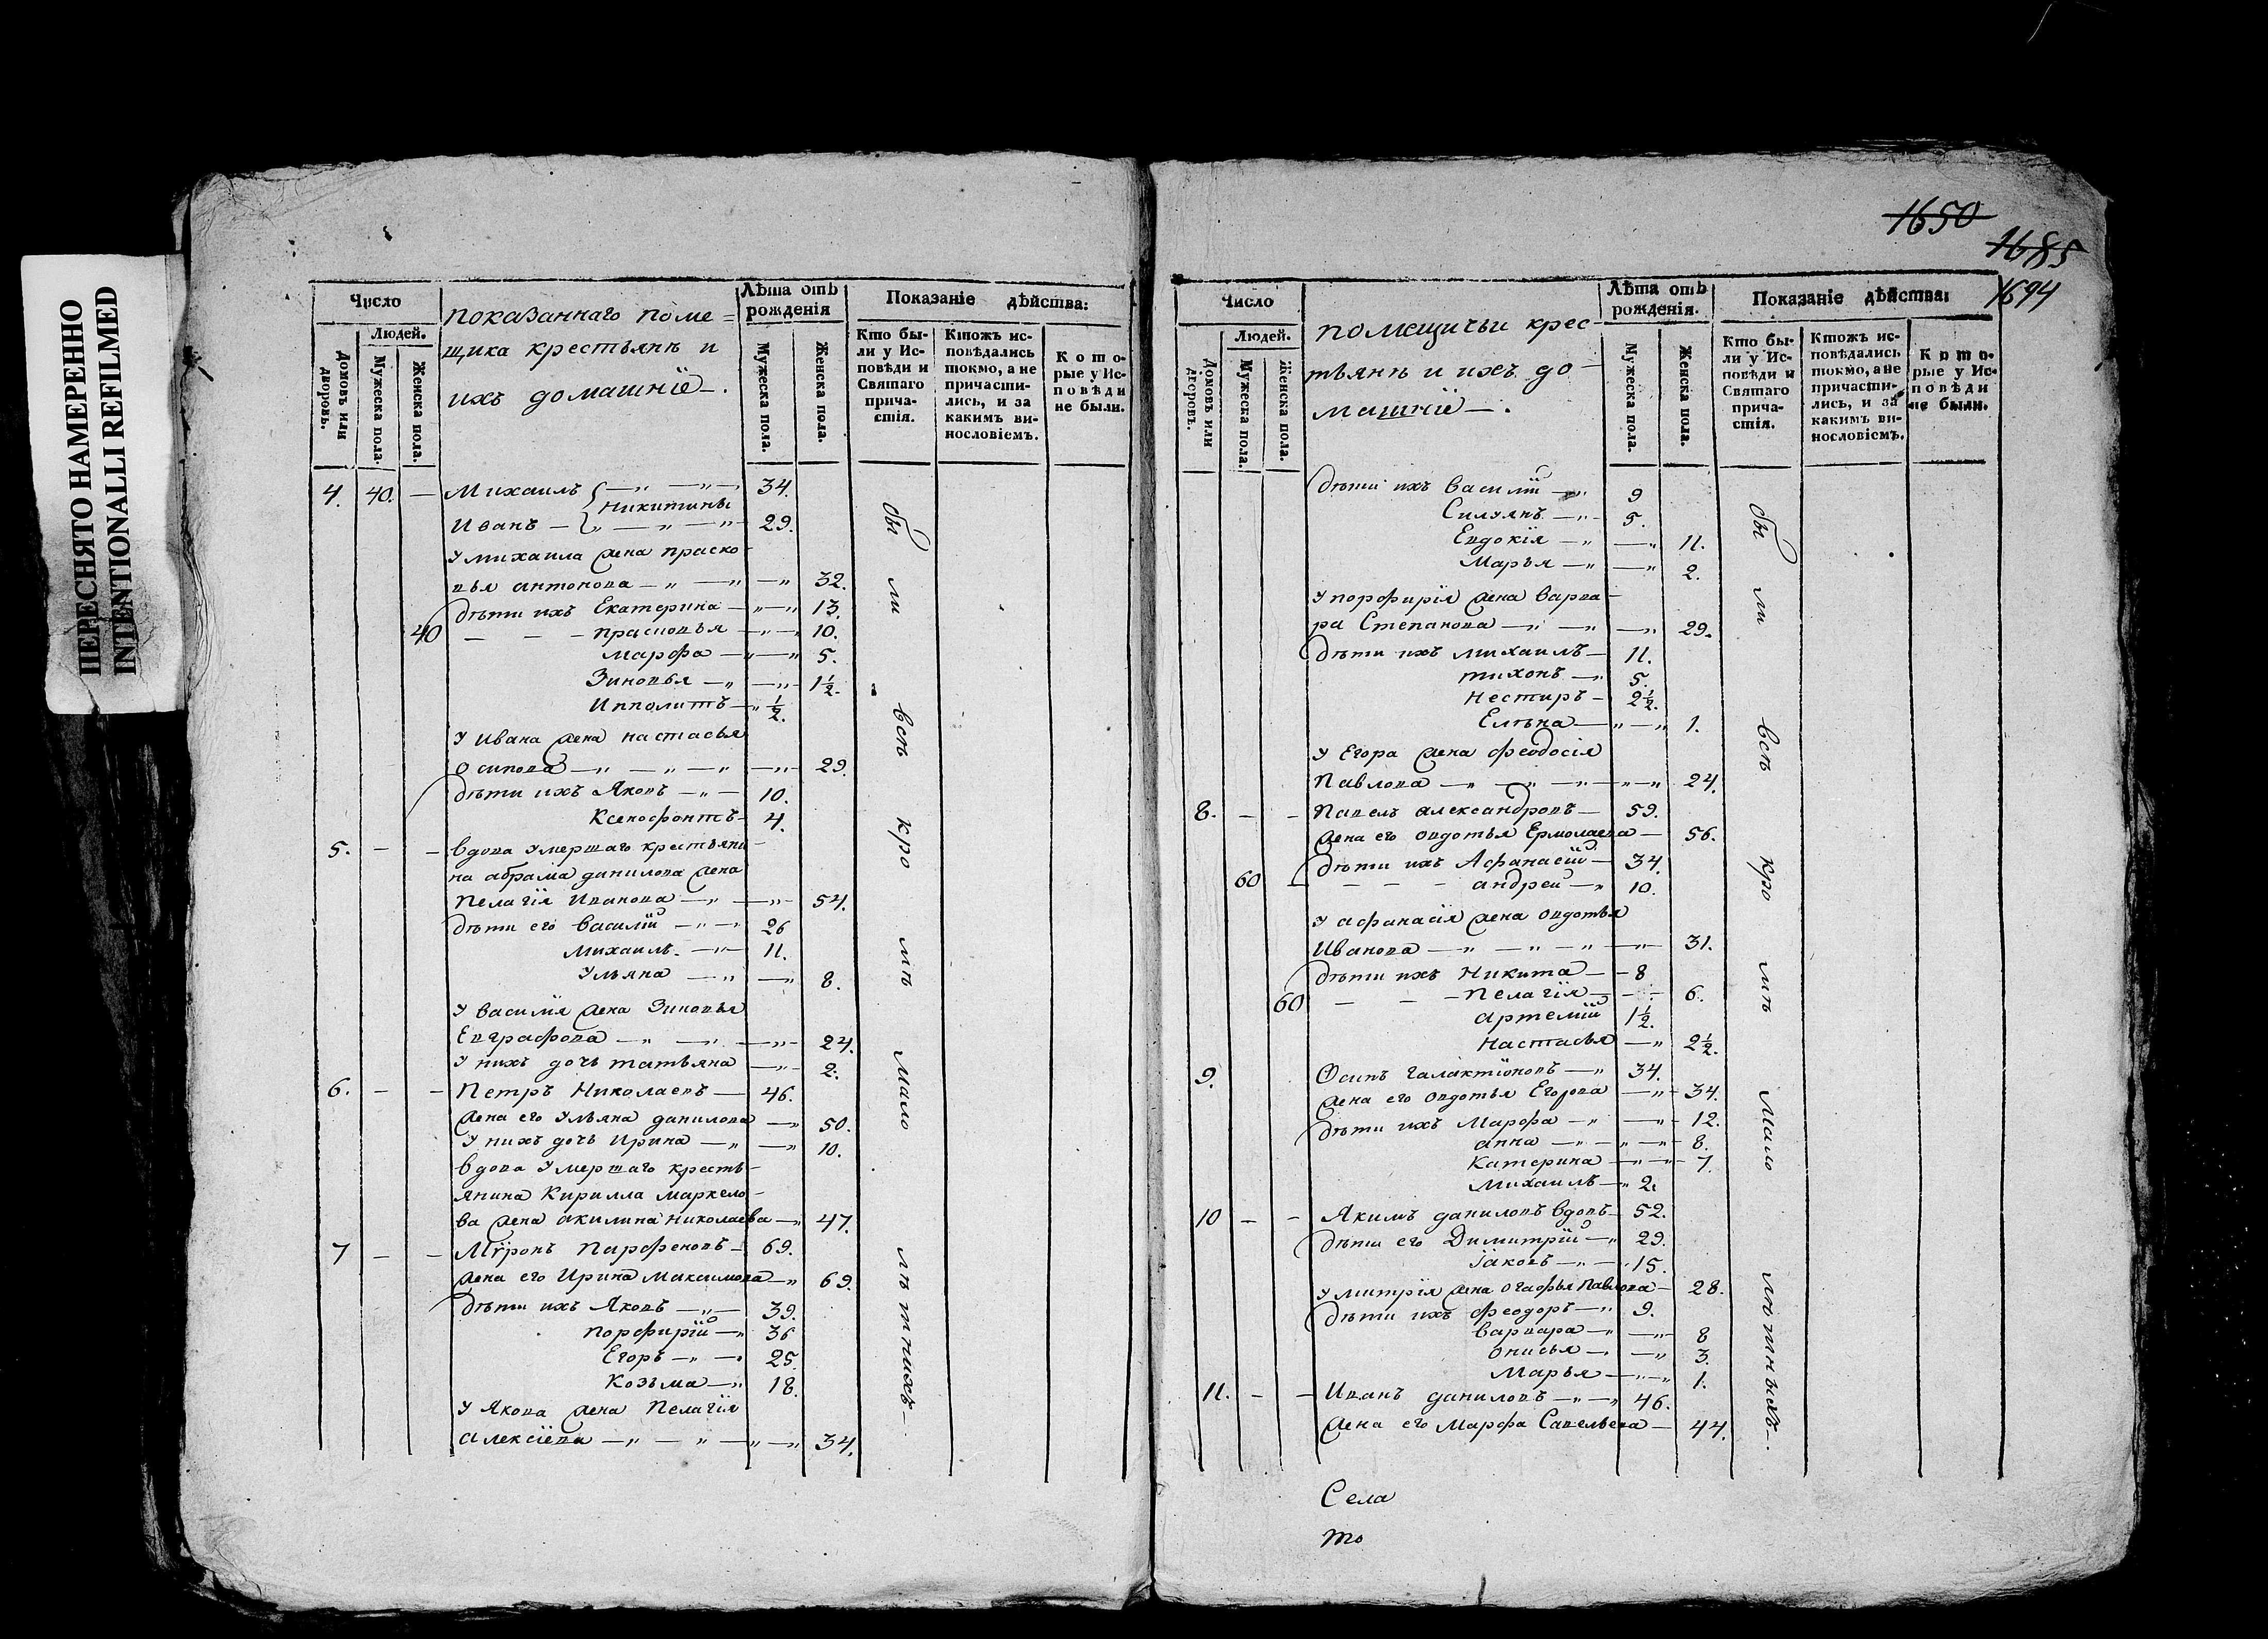 ПЕРЕСНЯТО НАМЕРЕННО
INTENTIONALLI REFILMED
Число
Людей.
Домовъ или дворовъ.
Мужеска пола.
Женска пола.
показаннаго поме=
щика крестьянъ и
ихъ домашніе.
Лѣта отъ рожденія
Мужеска пола.
Женска пола.
Показаніе дѣйства:
Кто бы-
ли у Ис-
повѣди и
Святаго
прича-
стія.
Ктожъ ис-
повѣдались
токмо, а не
причасти-
лись, и за
какимъ ви-
нословіемъ.
Кото-
рые у Ис-
повѣди
не были.
4. 40. — Михаилъ — „ — „ — 34.
Никитины
Иванъ — „ — „ — „ 29.
У михаила жена праско-
вья антонова — „ — „ — „ 32.
дѣти ихъ Екатерина — „ — „ 13.
40 — — — прасковья — „ — 10.
Марфа — „ — „ 5.
Зиновья — „ — „ 1 1/2.
Ипполитъ — „ 1/2.
У Ивана жена настасья
Осипова — „ — „ — „ — „ 29.
дѣти ихъ Яковъ — „ — 10.
Ксенофонтъ — 4.
5. — — вдова умершаго крестьяни-
на абрама данилова жена
Пелагія Иванова — „ — „ 54.
дѣти его Василій — „ — „ 26
Михаилъ — „ — 11.
Ульяна — „ — „ 8.
У василія жена Зиновья
Евграфова — „ — „ — „ 24.
У нихъ дочь татьяна — „ 2.
6. — — Петръ Николаевъ — 46.
жена его Ульяна данилова — „ 50.
У нихъ дочь Ирина — „ — „ 10.
вдова умершаго кресть-
янина Кирилла маркело-
ва жена акилина николаева — „ 47.
7 — — Мѵронъ Парфеновъ — 69.
жена его Ирина Максимова — „ 69.
дѣти ихъ Яковъ — „ — 39.
порфирій — „ 36
Егоръ — „ — „ 25.
Козьма — „ 18.
У Якова жена Пелагія
алексіева — „ — „ — „ — „ 34.
бы ли всѣ кро мѣ мало лѣтнихъ —
1650
1685
1694
Число
Людей.
Домовъ или дворовъ.
Мужеска пола.
Женска пола.
помещичьи крес-
тьянъ и ихъ до-
машніе —.
Лѣта отъ рожденія.
Мужеска пола.
Женска пола.
Показаніе дѣйства:
Кто бы-
ли у Ис-
повѣди и
Святаго
прича-
стія.
Ктожъ ис-
повѣдались
токмо, а не
причасти-
лись, и за
какимъ ви-
нословіемъ.
Кото-
рые у Ис-
повѣди
не были.
дѣти ихъ Василій — „ 9
Силуянъ — „ 5.
Евдокія — „ — „ 11.
Марья — „ — „ 2.
У порфирія жена варва-
ра Степанова — „ — „ — „ 29.
дѣти ихъ михаилъ — 11.
тихонъ — „ 5.
нестиръ — 2 1/2.
Елѣна — „ — „ 1.
У Егора жена феодосія
Павлова — „ — „ — „ — „ 24.
8. — — Павелъ александровъ — 59.
жена его овдотья Ермолаева — 56.
дѣти ихъ Афанасій — 34.
60 — — — — андрей — „ 10.
У афанасія жена овдотья
Иванова — „ — „ — „ — „ 31.
дѣти ихъ Никита — 8
60 — — — Пелагія — — 6.
артемій 1 1/2.
Настасья — „ 2 1/2.
9. Осипъ галактіоновъ — „ 34.
жена его овдотья Егорова — „ 34.
дѣти ихъ Марфа — „ — „ 12.
анна — „ — „ — „ 8.
Катерина — „ — „ 7.
Михаилъ — „ 2.
10 — — Якимъ даниловъ вдовъ — 52.
дѣти его Димитрій — „ 29.
Іаковъ — „ — 15.
У митрія жена огафья Павлова — 28.
дѣти ихъ феодоръ — „ 9.
варвара — „ — „ 8
онисья — „ — „ 3.
Марья — „ — „ 1.
11. — — Иванъ даниловъ — „ — „ 46.
жена его Марфа Савельева — 44.
бы ли всѣ кро мѣ мало лѣтныхъ —.
Села
то